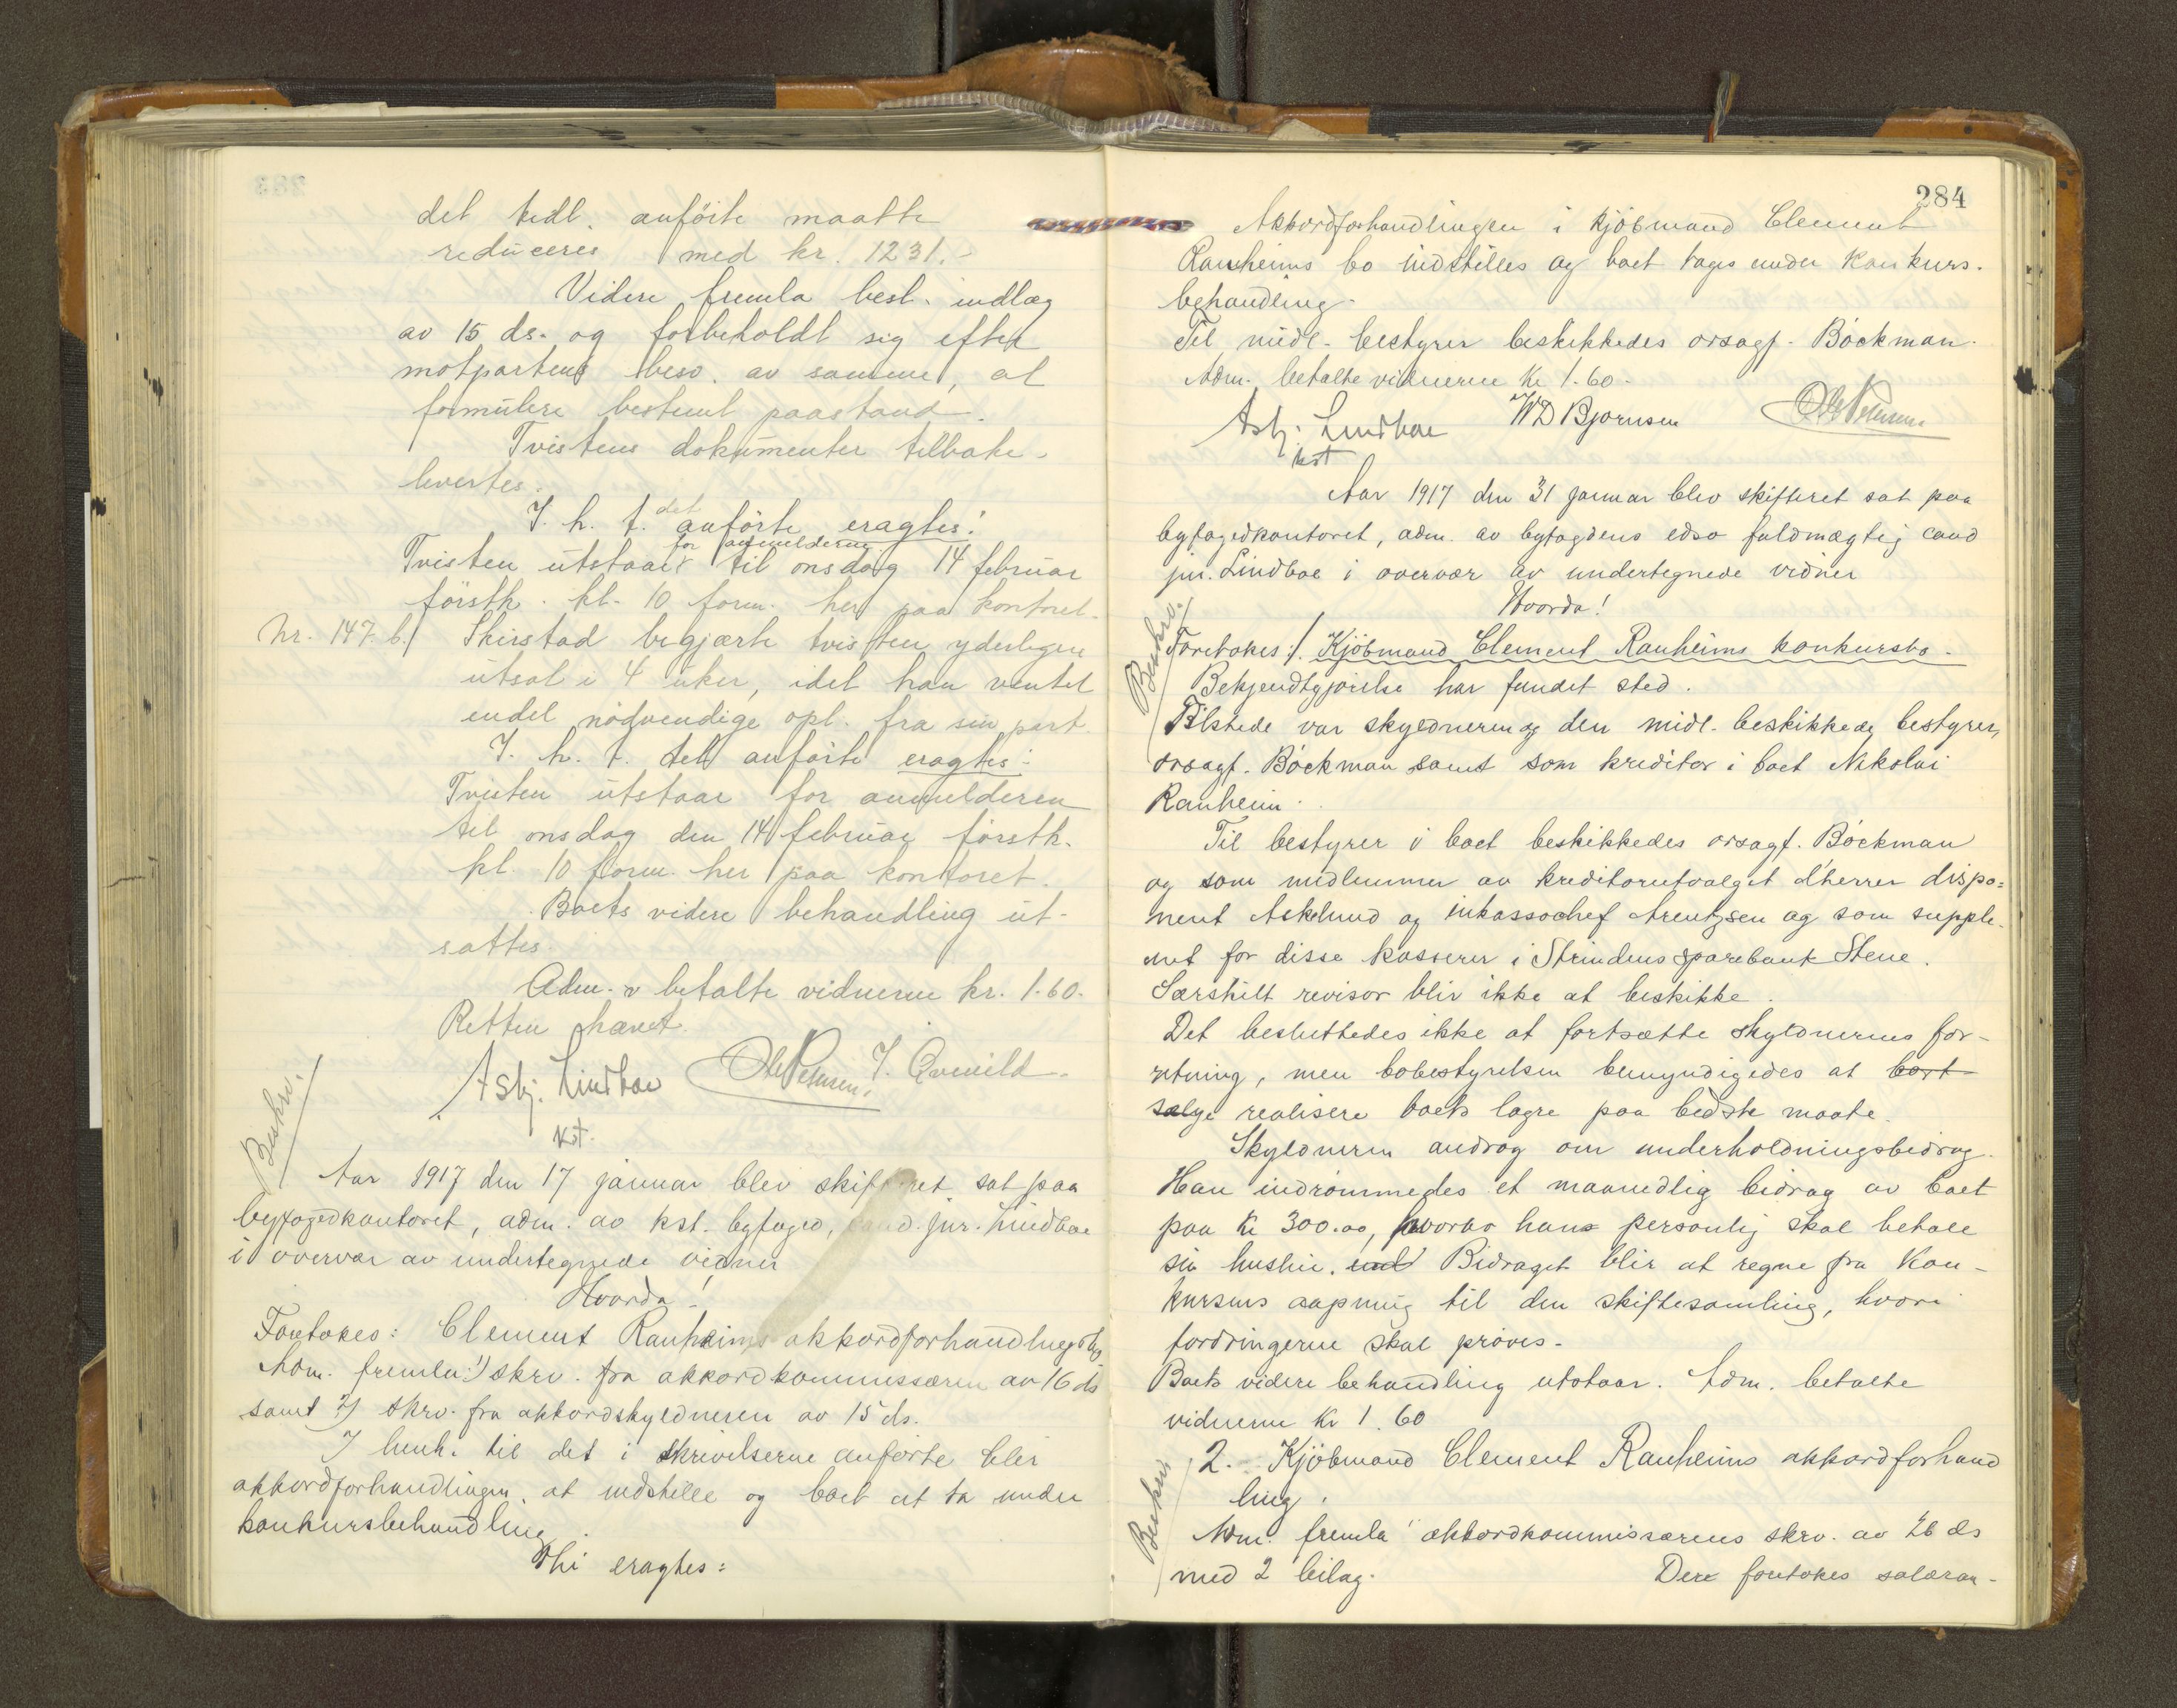 det tidl. anförte maatte
reduceres med kr. 1231.-
Videre fremla best. indlæg
av 15 ds. og forbeholdt sig efter
motpartens besv. av samme, at
formulere bestemt paastand.
Tvistens dokumenter tilbake-
levertes.
I. h. t. det anförte eragtes:
Tvisten utstaar for anmelderne til onsdag 14 februar
förstk. kl. 10 form. her paa kontoret.
Nr. 147. b.) Skirstad begjærte tvisten yderligere
utsat i 4 uker, idet han ventet
endel nödvendige opl. fra sin part.
I. h. t. det anförte eragtes:
Tvisten utstaar for anmelderen
til onsdag den 14 februar förstk.
kl. 10 form. her paa kontoret.
Boets videre behandling ut-
sattes.
Adm. betalte vidnerne kr. 1.60.
Retten hævet.
Asbj. Lindboe Ole Petersen. J. Qvenild.
kst.
Beskrv.
Aar 1917 den 17 januar blev skifteret sat paa
byfogedkontoret, adm. av kst. byfoged, cand. jur. Lindboe
i overvær av undertegnede vidner
Hvorda!
Foretokes: Clement Ranheims akkordforhandlingsbo.
Adm. fremla 1) skrv. fra akkordkommissæren av 16 ds
samt 2) skrv. fra akkordskyldneren av 15 ds.
I henh. til det i skrivelserne anførte blir
akkordforhandlingen at indstille og boet at ta under
konkursbehandling.
Thi eragtes:
284
Akkordforhandlingen i kjöbmand Clement
Ranheims bo indstilles og boet tages under konkurs-
behandling.
Til midl. bestyrer beskikkedes orsagf. Böckman.
Adm. betalte vidnerne Kr 1.60.
Asbj. Lindboe WD Bjørnsen Ole Petersen
kst
Aar 1917 den 31 januar blev skifteret sat paa
byfogedkontoret, adm. av byfogdens edsv fuldmægtig cand
jur. Lindboe i overvær av undertegnede vidner
Hvorda!
Beskrv.
Foretokes: 1. Kjöbmand Clement Ranheims konkursbo.
Bekjendtgjørelse har fundet sted.
Tilstede var skyldneren og den midl. beskikkede bestyrer,
orsagf. Böckman samt som kreditor i boet Nikolai
Ranheim.
Til bestyrer i boet beskikkedes orsagf. Böckman
og som medlemmer av kreditorutvalget d'herrer dispo=
nent Askelund og inkassochef Arentzen og som supple-
ant for disse kasserer i Strindens sparebank Stene.
Særskilt revisor blir ikke at beskikke.
Det besluttedes ikke at fortsætte skyldnerens for-
retning, men bobestyrelsen bemyndigedes at bort
sælge realisere boets lagre paa bedste maate.
Skyldneren androg om underholdningsbidrag.
Han indrømmedes et maanedlig bidrag av boet
paa Kr 300.00, hvorav han personlig skal betale
sin husleie. Bidraget blir at regne fra Kon-
kursens aapning til den skiftesamling, hvori
fordringerne skal prøves.
Boets videre behandling utstaar. Adm. betalte
vidnerne Kr 1.60
Beskrv
2. Kjöbmand Clement Ranheims akkordforhand
ling.
Adm. fremla akkordkommissærens skrv. av 26 ds
med 2 bilag. Der foretokes salæran-